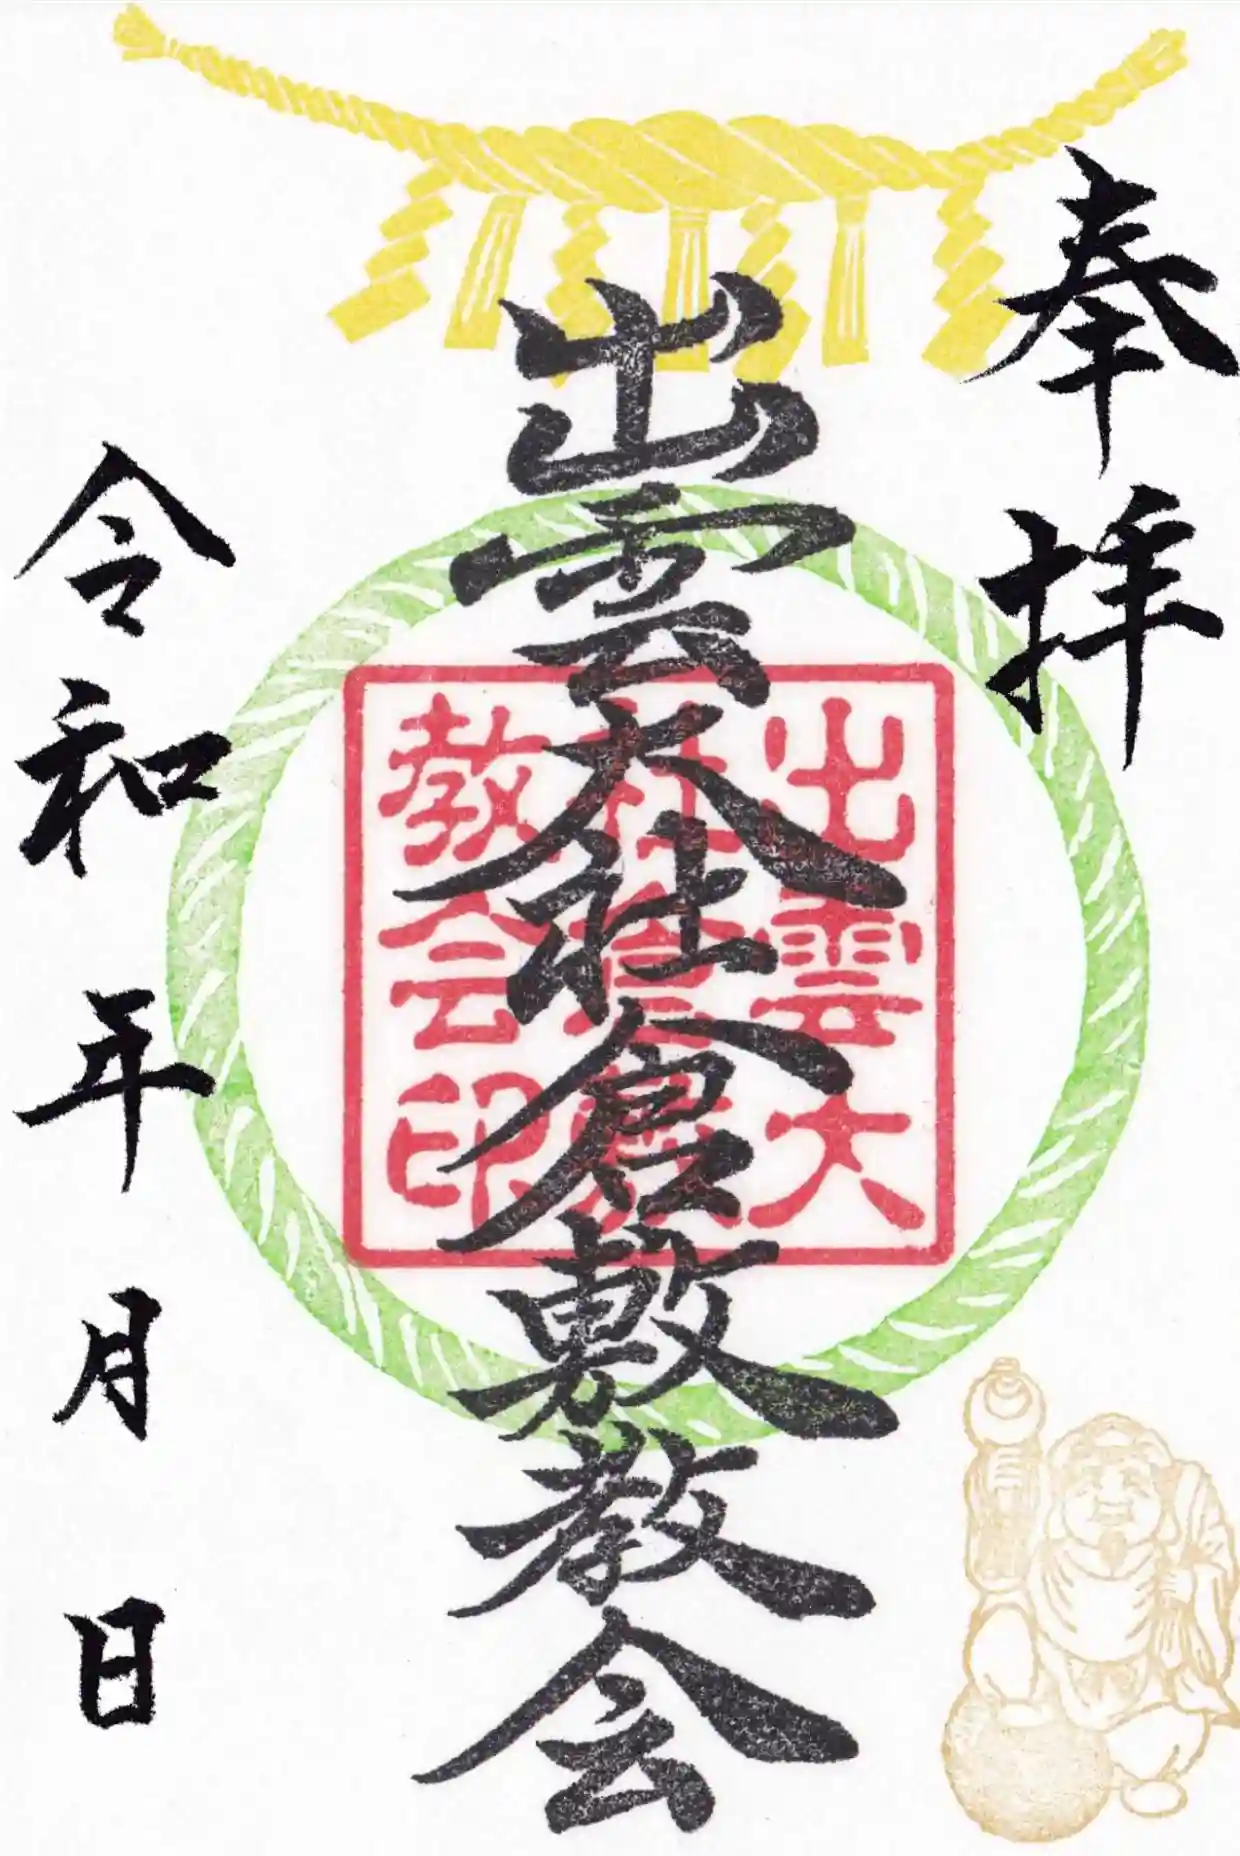 奉拝
出雲大社倉敷教会
出雲大
社倉敷
教会印
令和 年 月 日